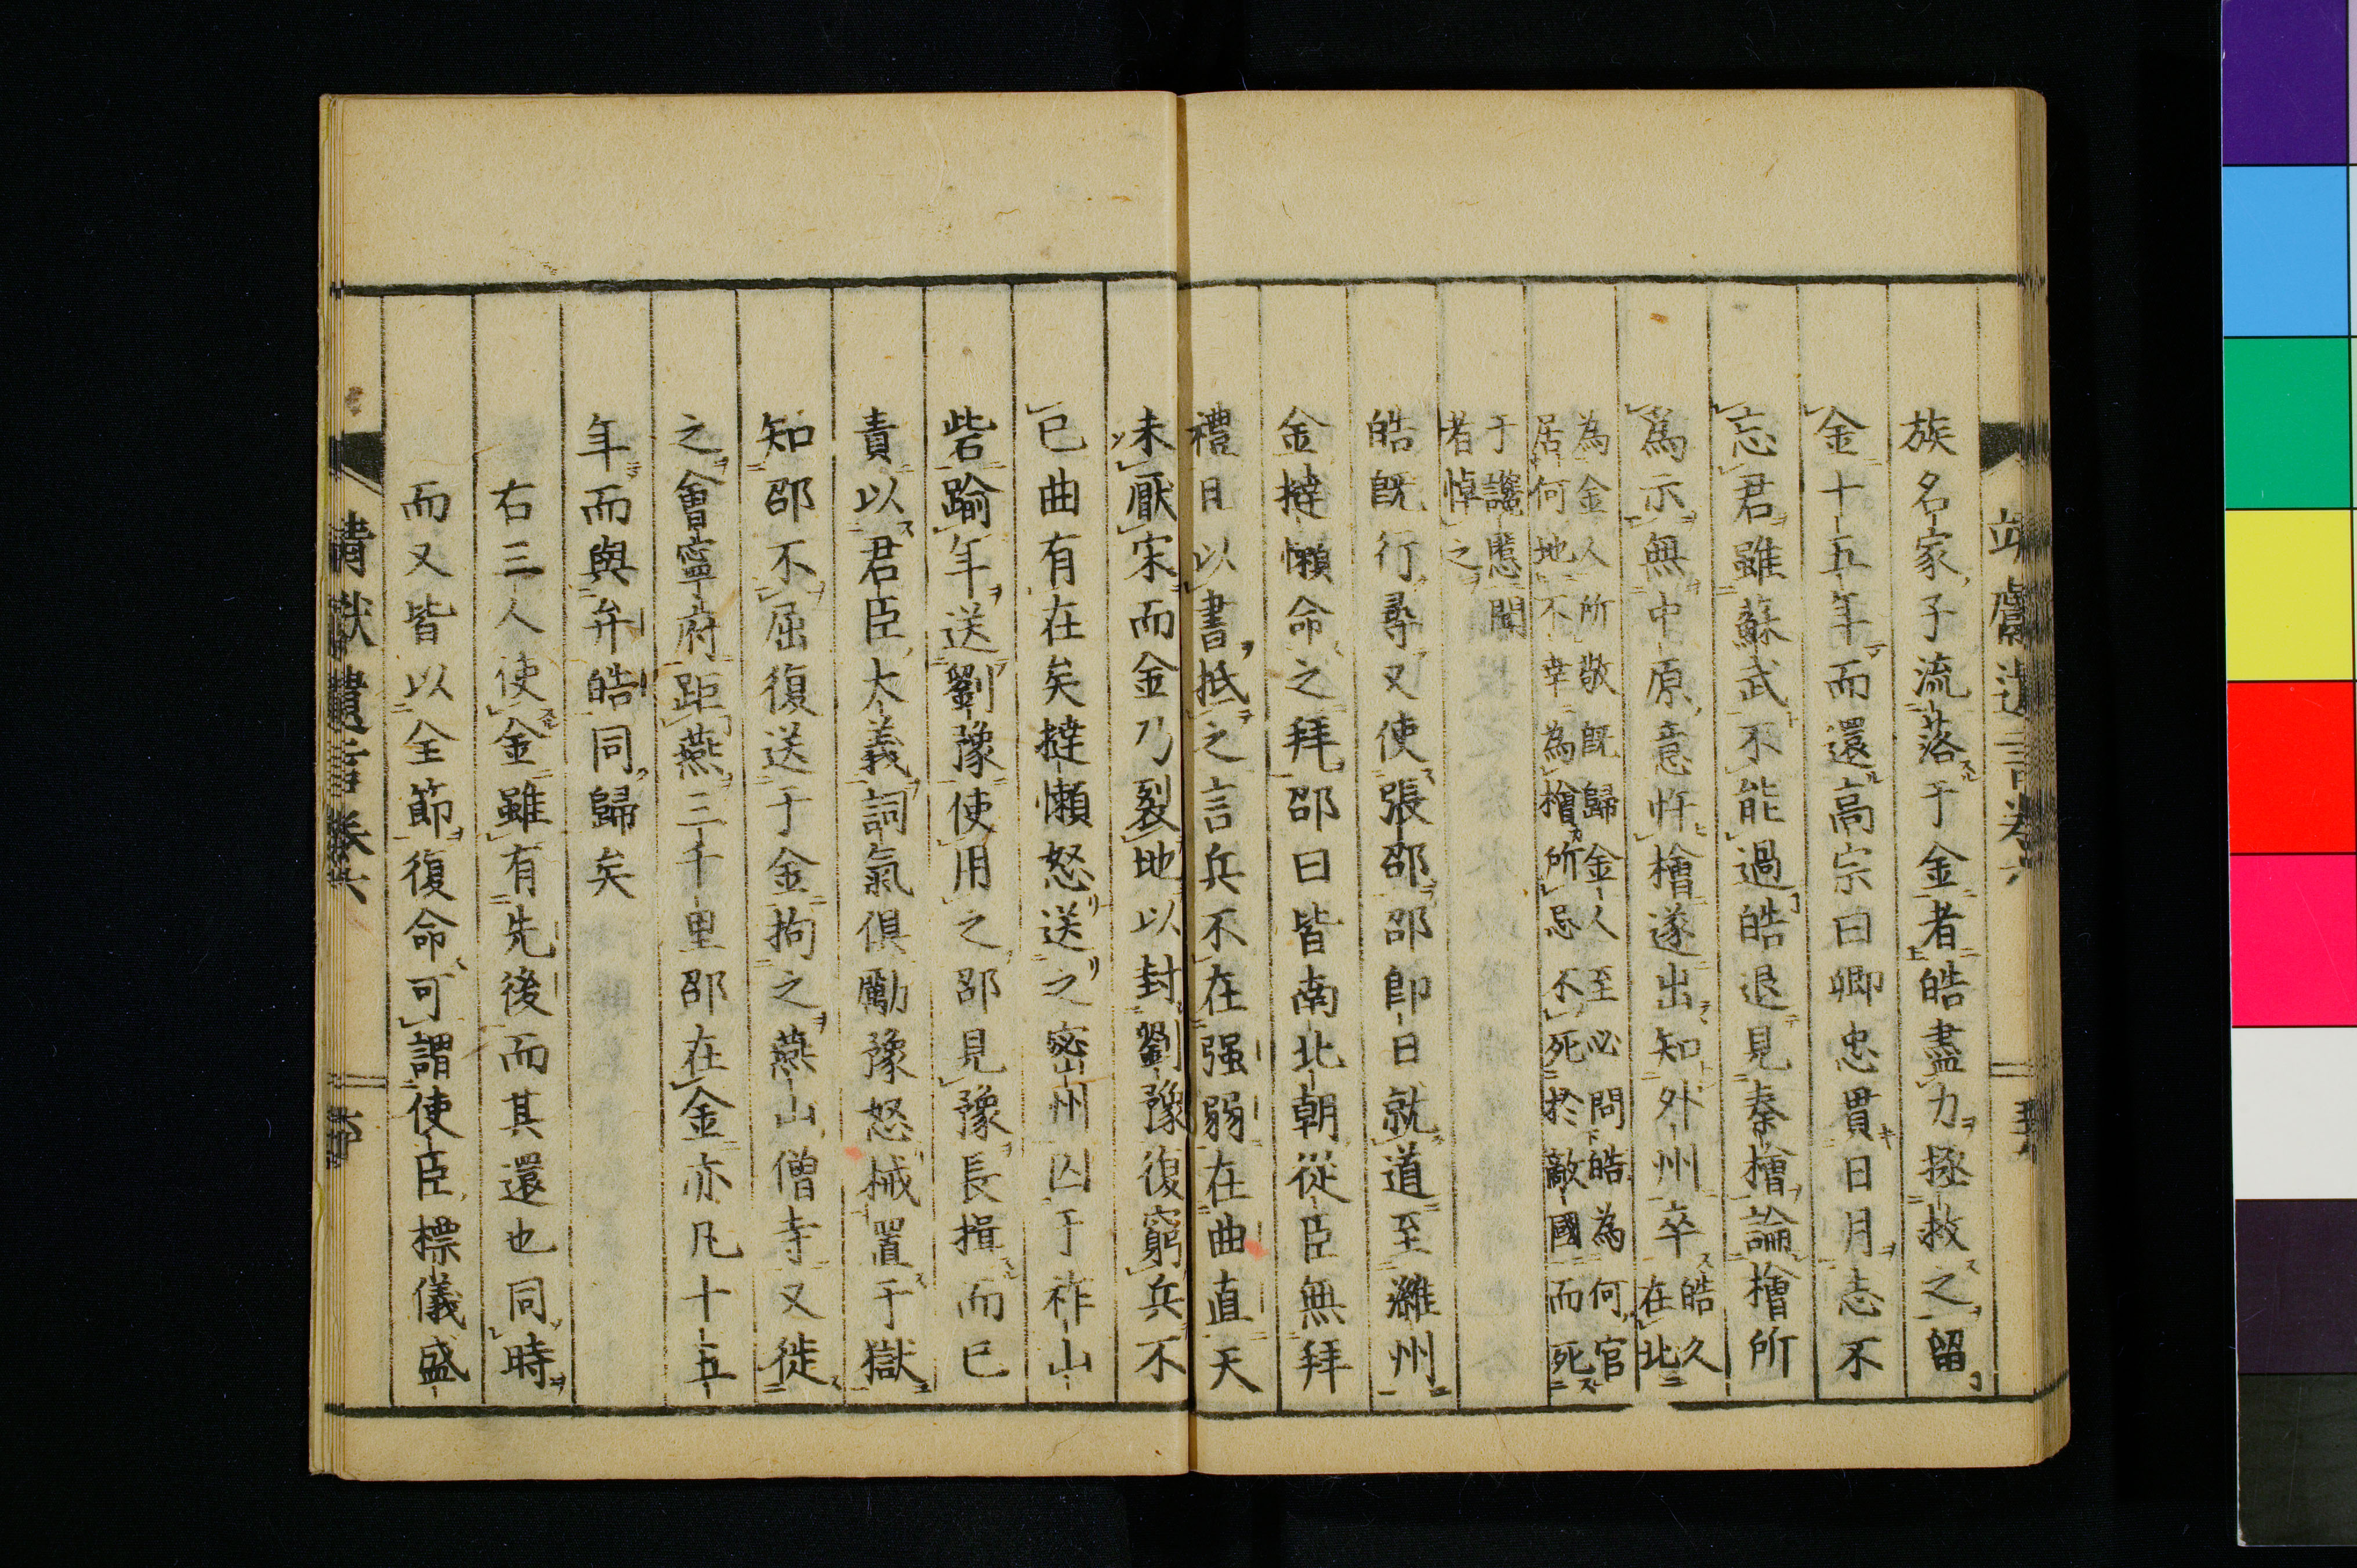 族名家子流落于金者皓盡力拯救之留
金十五年而還高宗曰卿忠貫日月志不
忘君雖蘇武不能過皓退見秦檜論檜所
爲示無中原意忤檜遂出知外州卒皓久在北
為金人所敬既歸金人至必問皓為何官
居何地不幸為檜所忌不死於敵國而死
于讒慝聞
者悼之
皓既行尋又使張邵邵卽日就道至濰州
金撻懶命之拜邵曰皆南北朝從臣無拜
禮且以書抵之言兵不在强弱在曲直天
未厭宋而金乃裂地以封劉豫復窮兵不
已曲有在矣撻懶怒送之密州囚于祚山
砦踰年送劉豫使用之邵見豫長揖而已
責以君臣大義詞氣俱勵豫怒械置于獄
知邵不屈復送于金拘之燕山僧寺又徙
之會寧府距燕三千里邵在金亦凡十五
年而與弁皓同歸矣
右三人使金雖有先後而其還也同時
而又皆以全節復命可謂使臣標儀盛